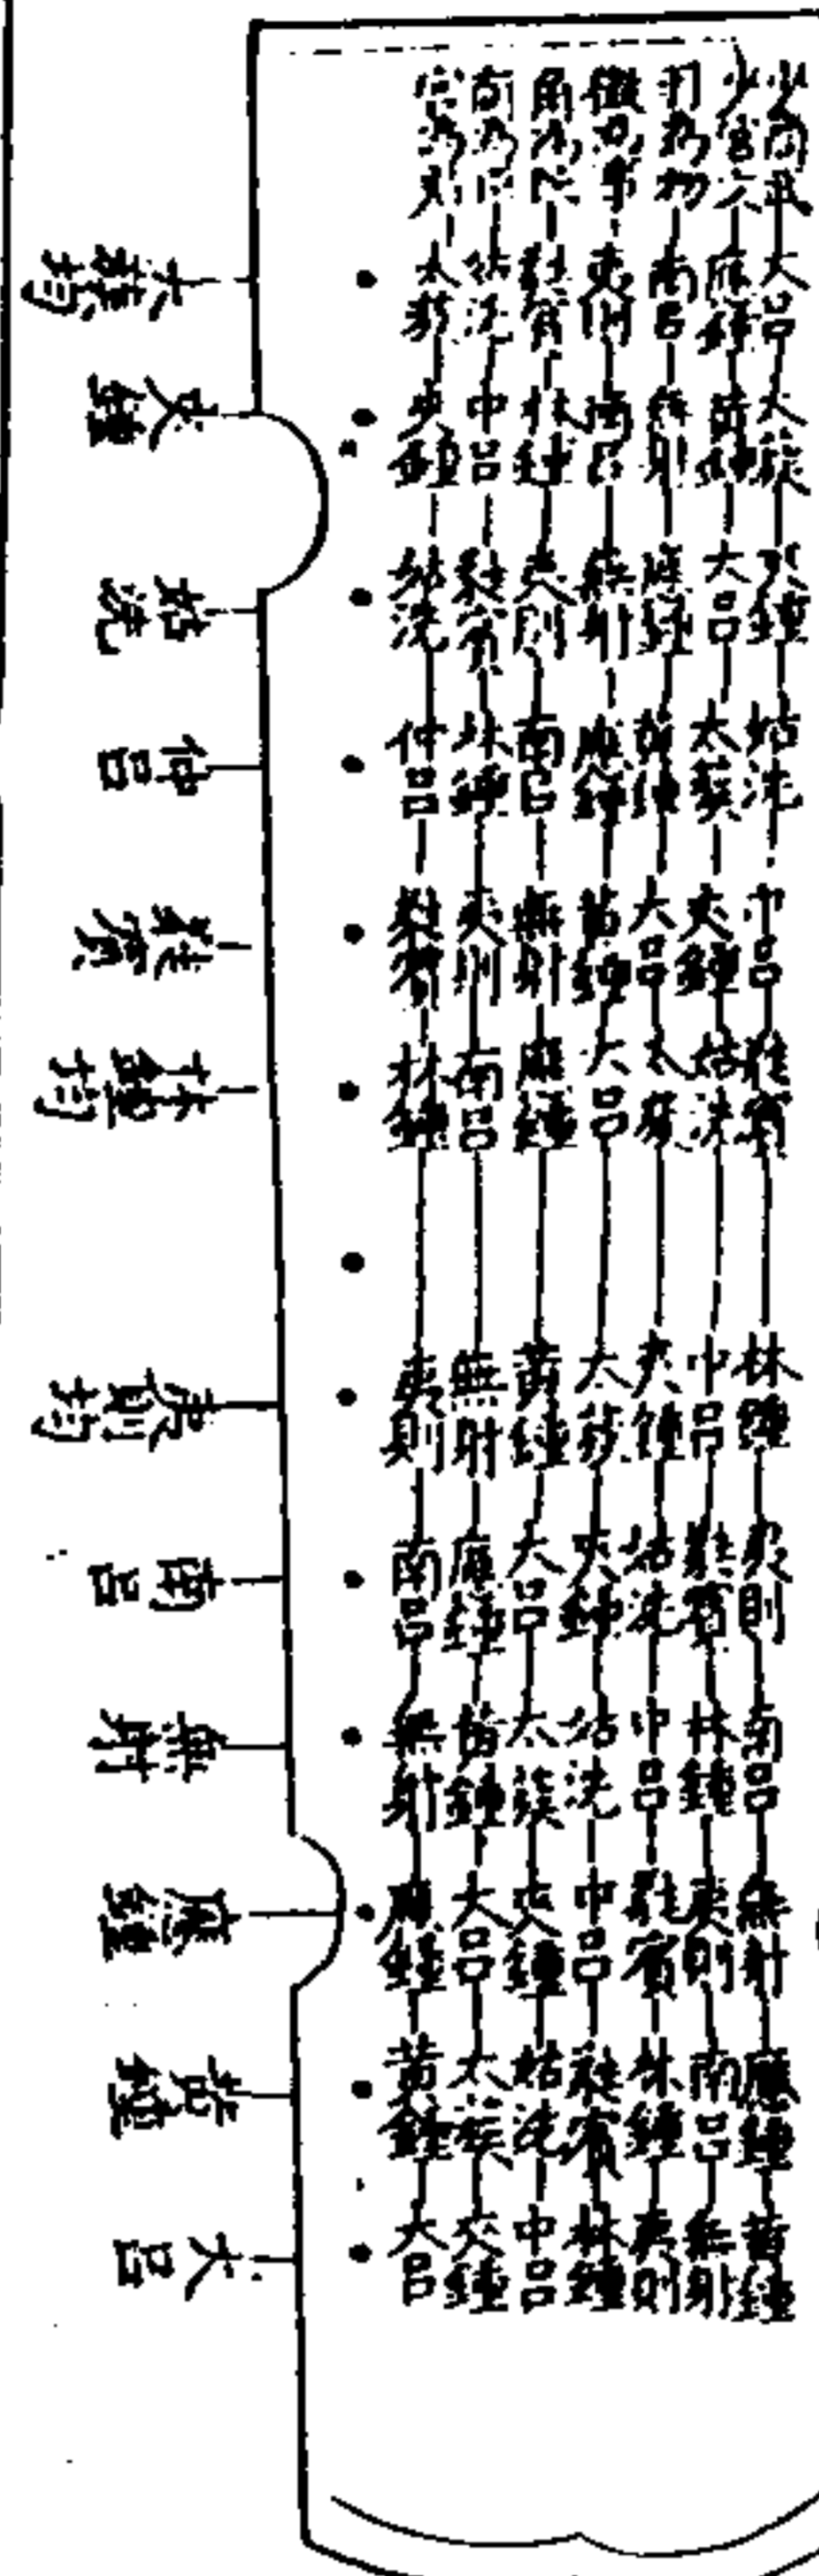 少商武 大呂 太簇 夾鐘 姑洗 中呂 蕤賓 林鐘 夷則 南呂 無射 應鐘 黃鐘
少宮文 應鐘 黃鐘 大呂 太簇 夾鐘 姑洗 中呂 蕤賓 林鐘 夷則 南呂 無射
羽為物 南呂 無射 應鐘 黃鐘 大呂 太簇 夾鐘 姑洗 中呂 蕤賓 林鐘 夷則
徵為事 夷則 南呂 無射 應鐘 黃鐘 大呂 太簇 夾鐘 姑洗 中呂 蕤賓 林鐘
角為民 蕤賓 林鐘 夷則 南呂 無射 應鐘 黃鐘 大呂 太簇 夾鐘 姑洗 中呂
商為臣 姑洗 中呂 蕤賓 林鐘 夷則 南呂 無射 應鐘 黃鐘 大呂 太簇 夾鐘
宮為君 太簇 夾鐘 姑洗 仲呂 蕤賓 林鐘 夷則 南呂 無射 應鐘 黃鐘 大呂
太簇均
夾鐘
姑洗
仲呂
蕤賓
林鐘均
夷則均
南呂
無射
應鐘
黃鐘
大呂